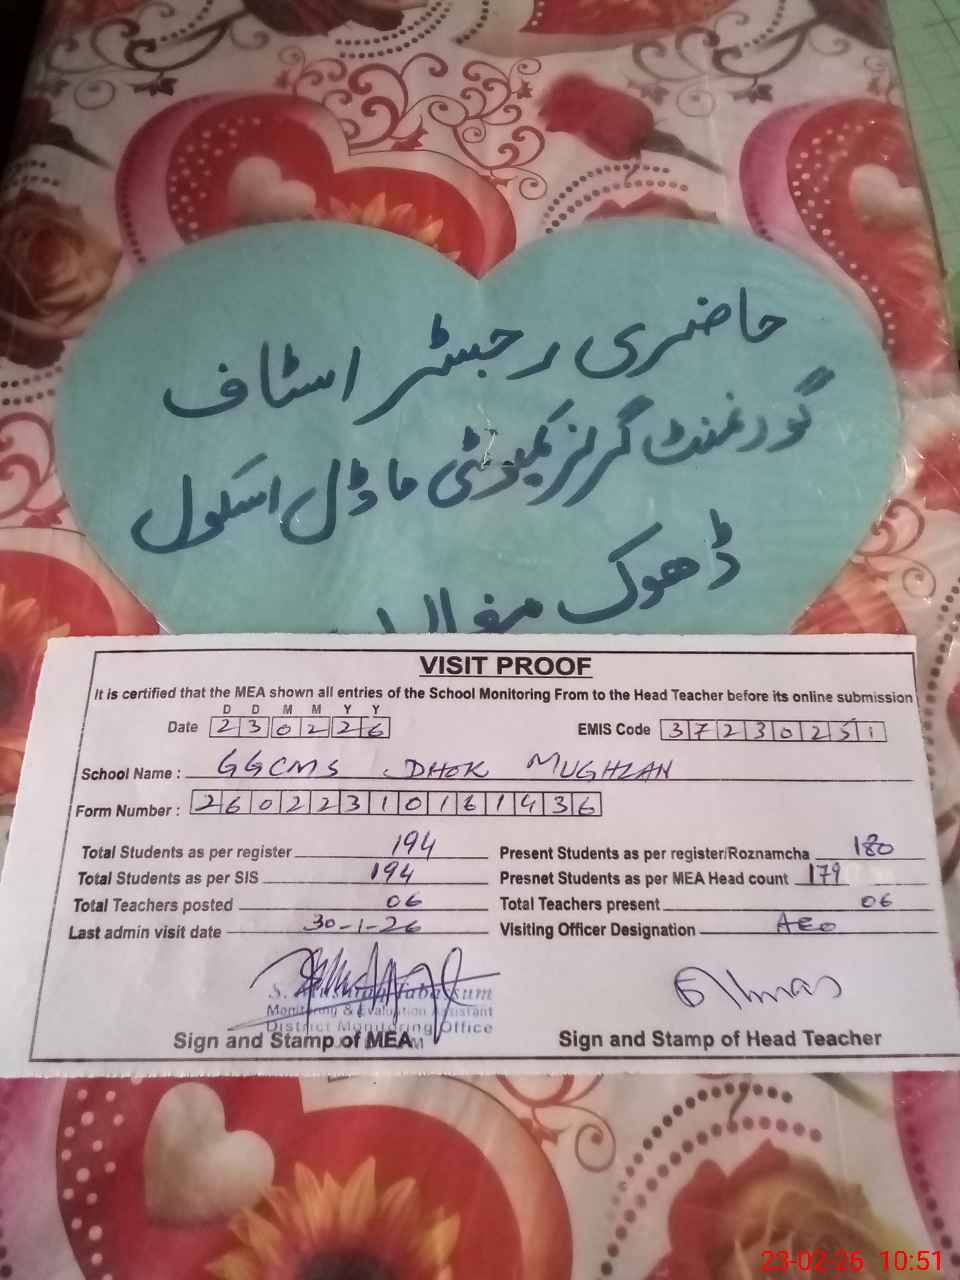 حاضری رجسٹر اسٹاف
گورنمنٹ گرلز کمیونٹی ماڈل اسکول
ڈھوک
VISIT PROOF
It is certified that the MEA shown all entries of the School Monitoring From to the Head Teacher before its online submission
D D M M Y Y
Date 2 3 0 2 2 6 EMIS Code 3 7 2 3 0 2 5 1
School Name : GGCMS DHOK MUGHLAN
Form Number : 2 6 0 2 2 3 1 0 1 6 1 4 3 6
Total Students as per register 194 Present Students as per register/Roznamcha 180
Total Students as per SIS 194 Presnet Students as per MEA Head count 179
Total Teachers posted 06 Total Teachers present 06
Last admin visit date 30-1-26 Visiting Officer Designation AEO
S. Tabassum
Monitoring & Evaluation Assistant
District Monitoring Office
Sign and Stamp of MEA Sign and Stamp of Head Teacher
23-02-26 10:51